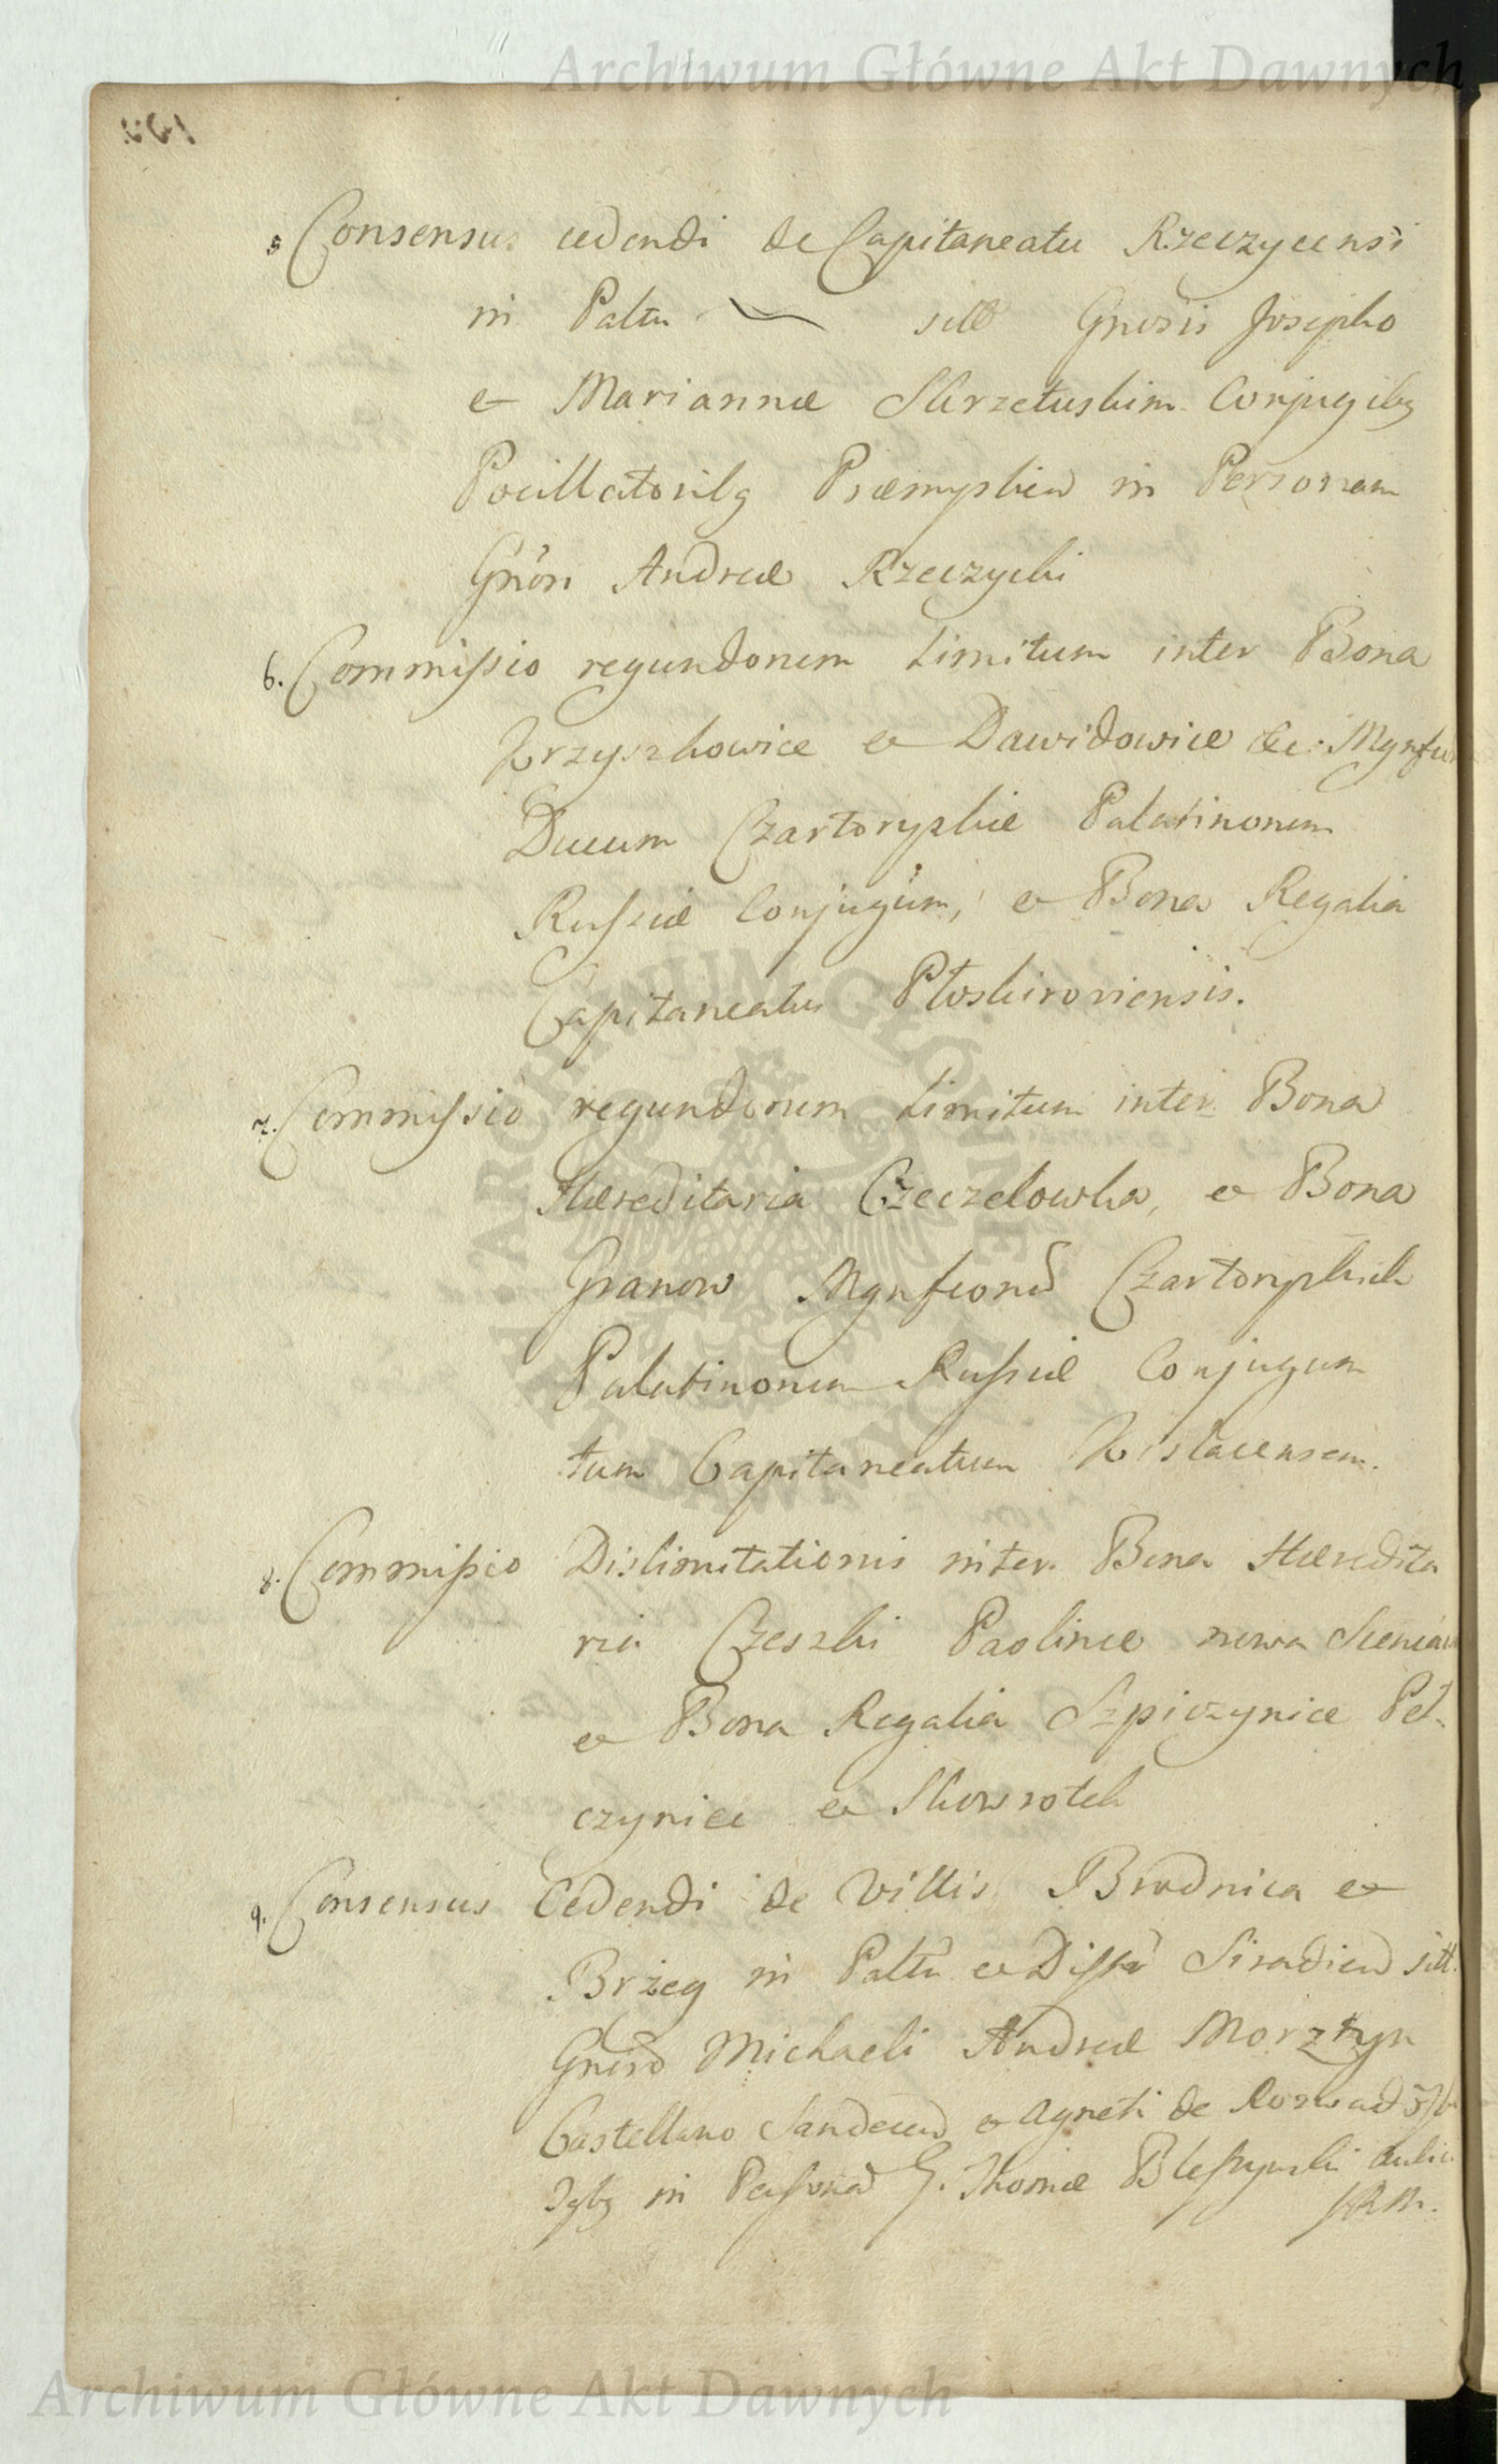 Archiwum Główne Akt Dawnych
5 Consensus cedendi de Capitaneatu Rzeczycensi
in Paltu sitt Gnosis Josepho
e Mariannæ Skrzetuskim Conjugibq
Pocillatoribq Præmyslien in Personam
Gnosi Andreæ Rzeczycki
6. Commissio regundorum Limitum inter Bona
Hrzyszkowice et Dawidowice &c: Mgnfcor
Ducum Czartoryskie Palatinorum
Russiæ Conjugum, et Bona Regalia
Capitaneatus Płoskiroviensis.
7. Commissio regundorum Limitum inter Bona
Hæreditaria Czeczelowka, et Bona
Granow Mgnfcorum Czartoryskich
Palatinorum Russiæ Conjugum
tum Capitaneatum
8. Commissio Dislimitationis inter Bona Hæredita
ria Czeszki Paolince nowa
et Bona Regalia Szpiczynice Pel-
czynice et Skowrotek
9. Consensus Cedendi de Villis Brodnica et
Brżeg in Paltu et Disstu Siradien sitt.
Gnoso Michaeli Andreæ Morzтyn
Castellano Sandecen et Agneti de
in Personam G. Thomæ Bleszynski Aulic
SRM.
ARCHIWUM GŁÓWNE AKT DAWNYCH
Archiwum Główne Akt Dawnych